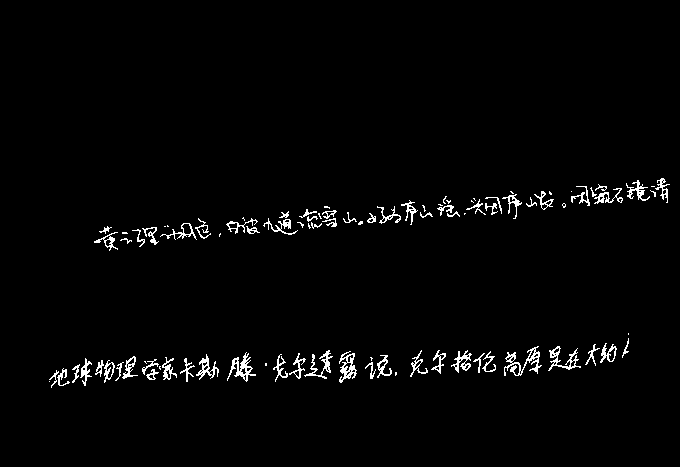 黄云万里动风色，白波九道流雪山。好为庐山谣，兴因庐山发。闲窥石镜清
地球物理学家卡斯滕·戈尔透露说，克尔格伦高原是在大约